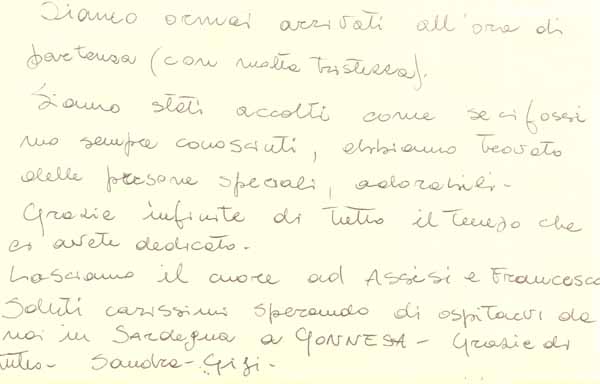 Siamo ormai arrivati all'ora di
partenza (con molta tristezza).
Siamo stati accolti come se ci fossi
mo sempre conosciuti, abbiamo trovato
delle persone speciali, adorabili-
Grazie infinite di tutto il tempo che
ci avete dedicato-
Lasciamo il cuore ad Assisi e Francesco
Saluti carissimi sperando di ospitarvi da
noi in Sardegna a GONNESA- Grazie di
tutto- Sandra-Gigi-